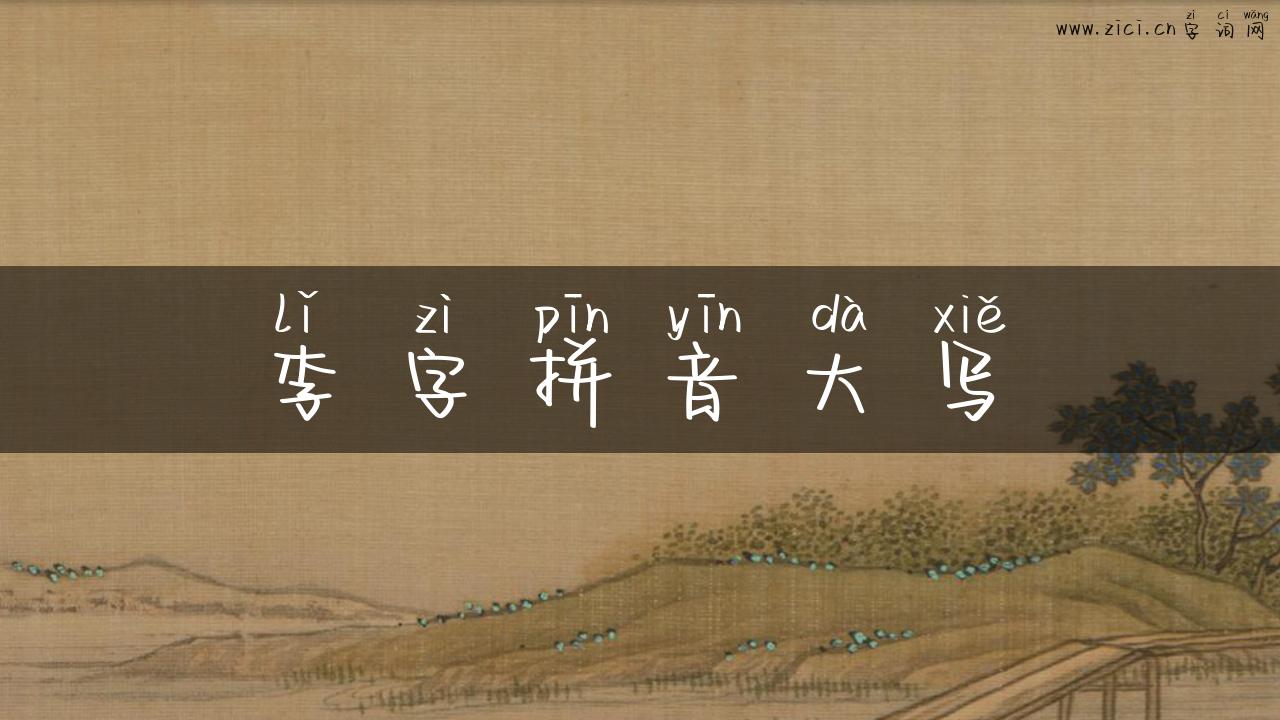 zì cí wǎng
www.zici.cn字词网
lǐ zì pīn yīn dà xiě
李字拼音大写